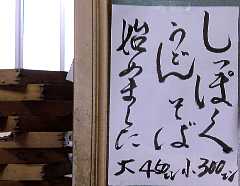 しっぽく
うどんそば
始めました
大460円 小300円